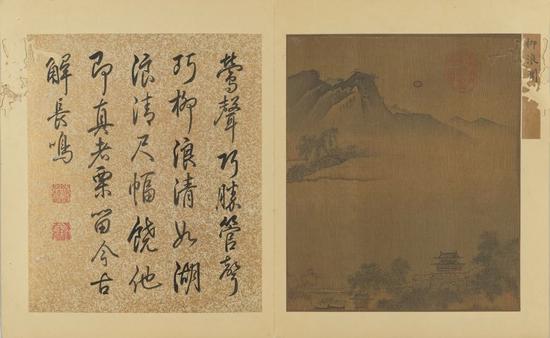 柳浪
鶯聲巧勝管聲
巧柳浪清如湖
浪清尺幅饒他
即真者栗留今古
解長鳴